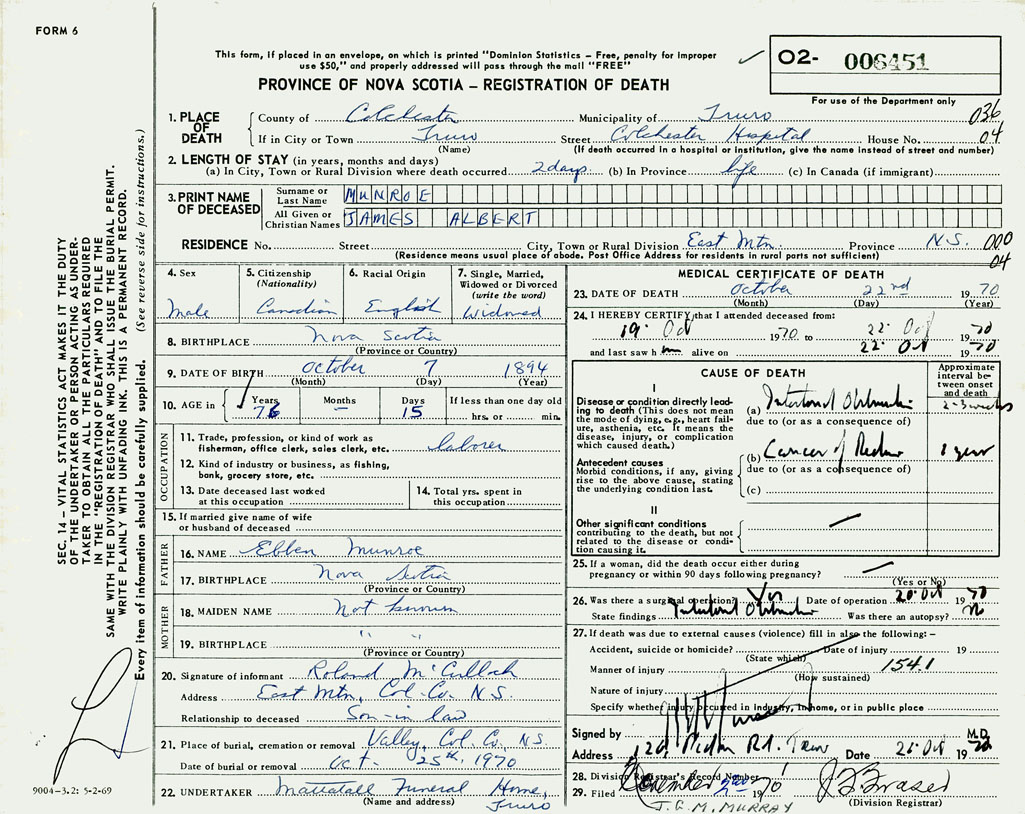 FORM 6
This form, if placed in an envelope, on which is printed "Dominion Statistics – Free, penalty for improper
use $50," and properly addressed will pass through the mail "FREE"
O2- 006451
For use of the Department only
PROVINCE OF NOVA SCOTIA – REGISTRATION OF DEATH
1. PLACE OF DEATH
County of Colchester Municipality of Truro 036
If in City or Town Truro Street Colchester Hospital House No. 04
(Name) (If death occurred in a hospital or institution, give the name instead of street and number)
2. LENGTH OF STAY (in years, months and days)
(a) In City, Town or Rural Division where death occurred 2 days (b) In Province life (c) In Canada (if immigrant)
3. PRINT NAME OF DECEASED
Surname or Last Name MUNROE
All Given or Christian Names JAMES ALBERT
RESIDENCE No. Street City, Town or Rural Division East Mtn. Province N.S. 000
(Residence means usual place of abode. Post Office Address for residents in rural parts not sufficient) 04
4. Sex 5. Citizenship (Nationality) 6. Racial Origin 7. Single, Married, Widowed or Divorced (write the word)
Male Canadian English Widowed
8. BIRTHPLACE Nova Scotia
(Province or Country)
9. DATE OF BIRTH October 7 1894
(Month) (Day) (Year)
10. AGE in Years Months Days If less than one day old
76 – 15 hrs. or min.
OCCUPATION
11. Trade, profession, or kind of work as
fisherman, office clerk, sales clerk, etc. laborer
12. Kind of industry or business, as fishing,
bank, grocery store, etc.
13. Date deceased last worked at this occupation
14. Total yrs. spent in this occupation
15. If married give name of wife
or husband of deceased
FATHER
16. NAME Ebben Munroe
17. BIRTHPLACE Nova Scotia
(Province or Country)
MOTHER
18. MAIDEN NAME Not known
19. BIRTHPLACE " "
(Province or Country)
20. Signature of informant Roland McCulloch
Address East Mtn, Col. Co. N.S.
Relationship to deceased Son-in law
21. Place of burial, cremation or removal Valley, Col. Co. N.S.
Date of burial or removal Oct. 25th, 1970
22. UNDERTAKER Mattatall Funeral Home,
(Name and address) Truro
MEDICAL CERTIFICATE OF DEATH
23. DATE OF DEATH October 22nd 1970
(Month) (Day) (Year)
24. I HEREBY CERTIFY that I attended deceased from:
19 Oct 1970 to 22 Oct 1970
and last saw him alive on 22 Oct 1970
CAUSE OF DEATH
Approximate interval between onset and death
I
Disease or condition directly leading to death (This does not mean the mode of dying, e.g., heart failure, asthenia, etc. It means the disease, injury, or complication which caused death.)
(a) Intestinal Obstruction 2-3 weeks
due to (or as a consequence of)
Antecedent causes
Morbid conditions, if any, giving rise to the above cause, stating the underlying condition last.
(b) Cancer of Rectum 1 year
due to (or as a consequence of)
(c)
II
Other significant conditions
contributing to the death, but not related to the disease or condition causing it.
25. If a woman, did the death occur either during
pregnancy or within 90 days following pregnancy?
(Yes or No)
26. Was there a surgical operation? Yes Date of operation 20 Oct 1970
State findings Intestinal Obstruction Was there an autopsy? No
27. If death was due to external causes (violence) fill in also the following:–
Accident, suicide or homicide? Date of injury 19
(State which)
Manner of injury 154.1
(How sustained)
Nature of injury
Specify whether injury occurred in industry, in home, or in public place
Signed by M.D.
Address Rd. Truro Date Oct 1970
28. Division Registrar's Record Number
29. Filed November 2nd 1970 J.G. Fraser
J.G.M. MURRAY (Division Registrar)
SEC. 14 – VITAL STATISTICS ACT MAKES IT THE DUTY
OF THE UNDERTAKER OR PERSON ACTING AS UNDER-
TAKER TO OBTAIN ALL THE PARTICULARS REQUIRED
IN THE "REGISTRATION OF DEATH" AND TO FILE THE
SAME WITH THE DIVISION REGISTRAR WHO SHALL ISSUE THE BURIAL PERMIT.
WRITE PLAINLY WITH UNFADING INK. THIS IS A PERMANENT RECORD.
Every item of information should be carefully supplied. (See reverse side for instructions.)
9004–3.2: 5-2-69